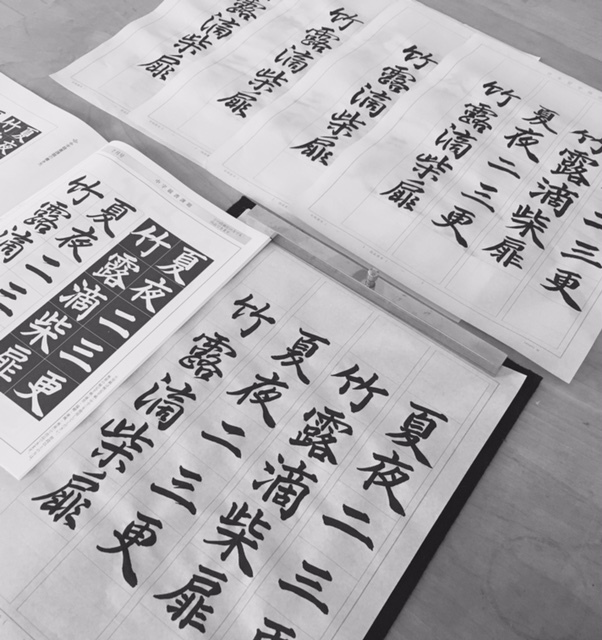 露滴柴扉
竹露滴柴扉
竹露滴柴扉
二三更
竹露滴柴扉
夏夜二三更
竹露滴柴扉
夏夜二三更
竹露滴柴扉
夏夜二三
竹露滴
夏夜二三更
竹露滴柴扉
夏夜二三更
竹露滴柴扉